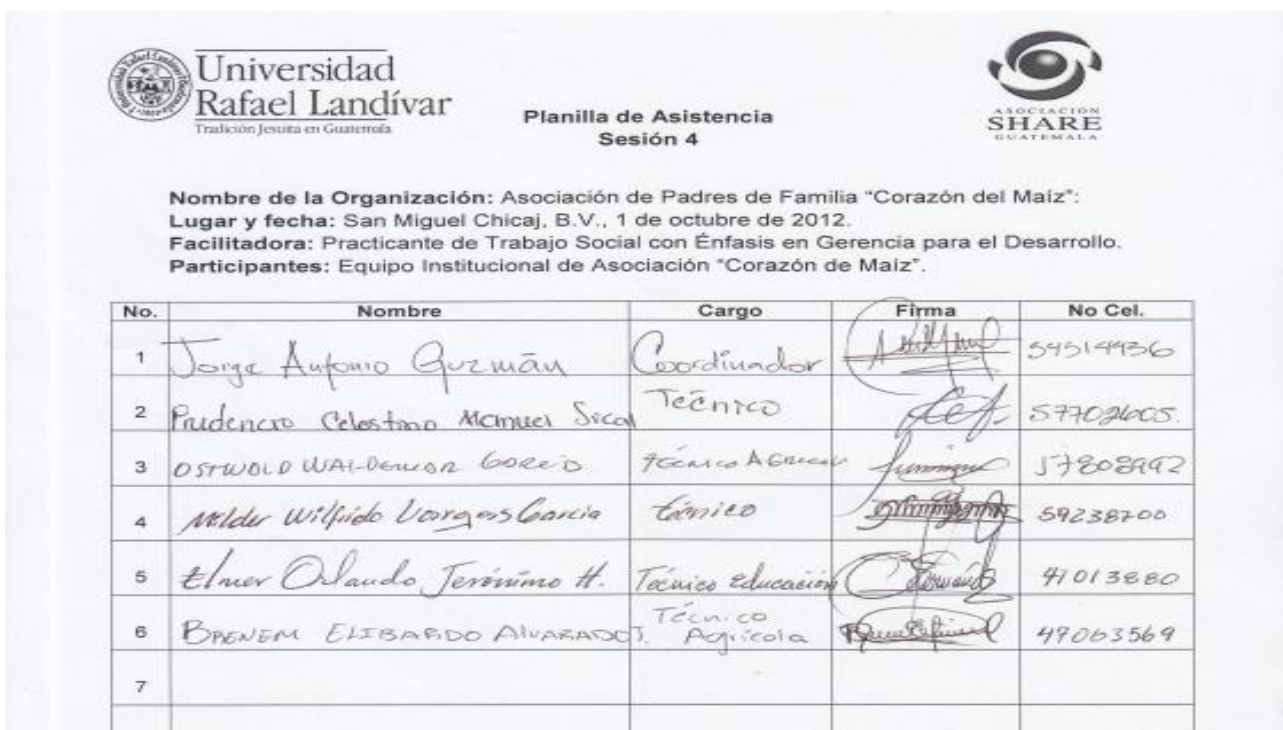 Universidad
Rafael Landívar
Tradición Jesuita en Guatemala
Planilla de Asistencia
Sesión 4
ASOCIACION
SHARE
GUATEMALA
Nombre de la Organización: Asociación de Padres de Familia "Corazón del Maíz":
Lugar y fecha: San Miguel Chicaj, B.V., 1 de octubre de 2012.
Facilitadora: Practicante de Trabajo Social con Énfasis en Gerencia para el Desarrollo.
Participantes: Equipo Institucional de Asociación "Corazón de Maíz".
No. Nombre Cargo Firma No Cel.
1 Jorge Antonio Guzmán Coordinador 54514936
2 Prudencio Celestino Manuel Sical Técnico 57702605.
3 OSTWOLD Técnico 57808992
4 Wilfrido Vargas Garcia técnico 59238700
5 Elmer Orlando Jerónimo H. Técnico Educación 41013880
6 ELIBARDO ALVARADO J. Técnico Agrícola 49063569
7